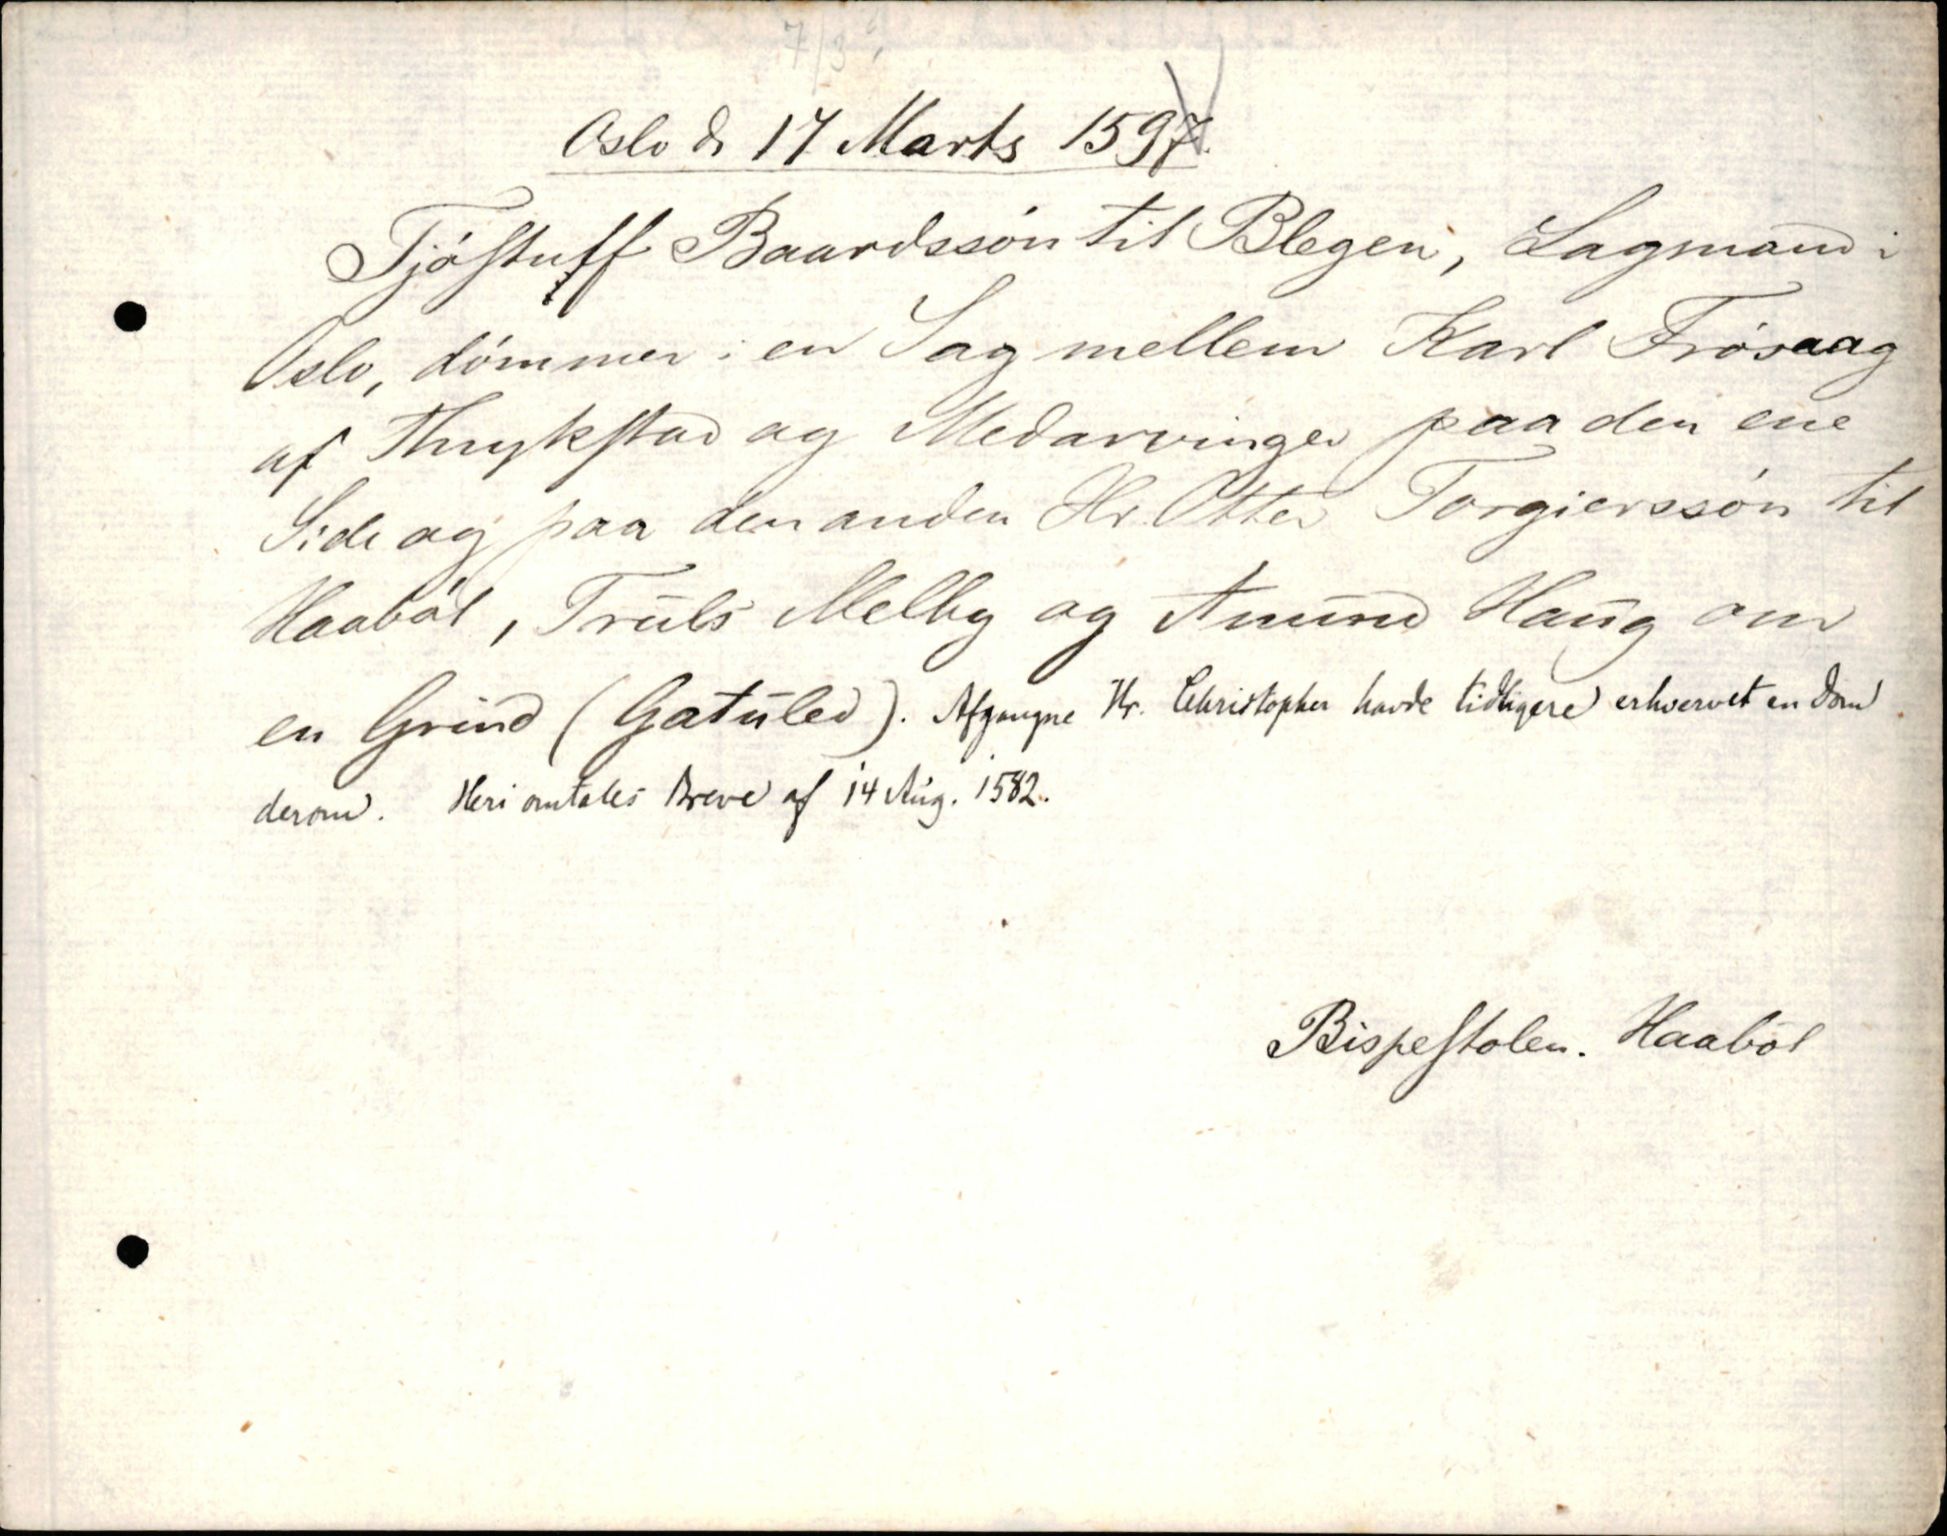 7/3
Oslo d. 17 Marts 1597.
Tjöstuff Baardssön til Blegen, Lagmand i
Oslo, dömmer i en Sag mellem Karl Frösaag
af Thrykstad og Medarvinger paa den ene
Side og paa den anden Hr. Otter Torgierssön til
Haaböl, Truls Melby og Amund Haug om
en Grind (Gatuled). Afgangne Hr. Christopher havde tidligere erhvervet en Dom
derom. Heri omtales Breve af 14 Aug. 1582.
Bispestolen. Haaböl